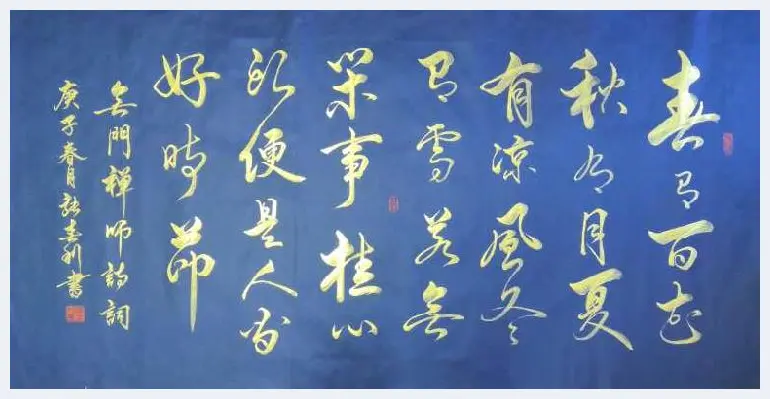 春有百花
秋有月夏
有凉風冬
有雪若無
閑事挂心
頭便是人間
好時節
無門禅師詩詞
庚子春月書